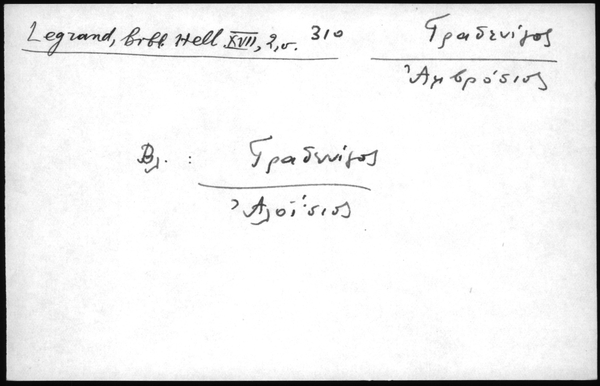 Legrand, bibl. Hell. XVII, 2, σ. 310
Γραδενίγος
Ἀμβρόσιος
Βλ. : Γραδενίγος
Ἀλοΐσιος